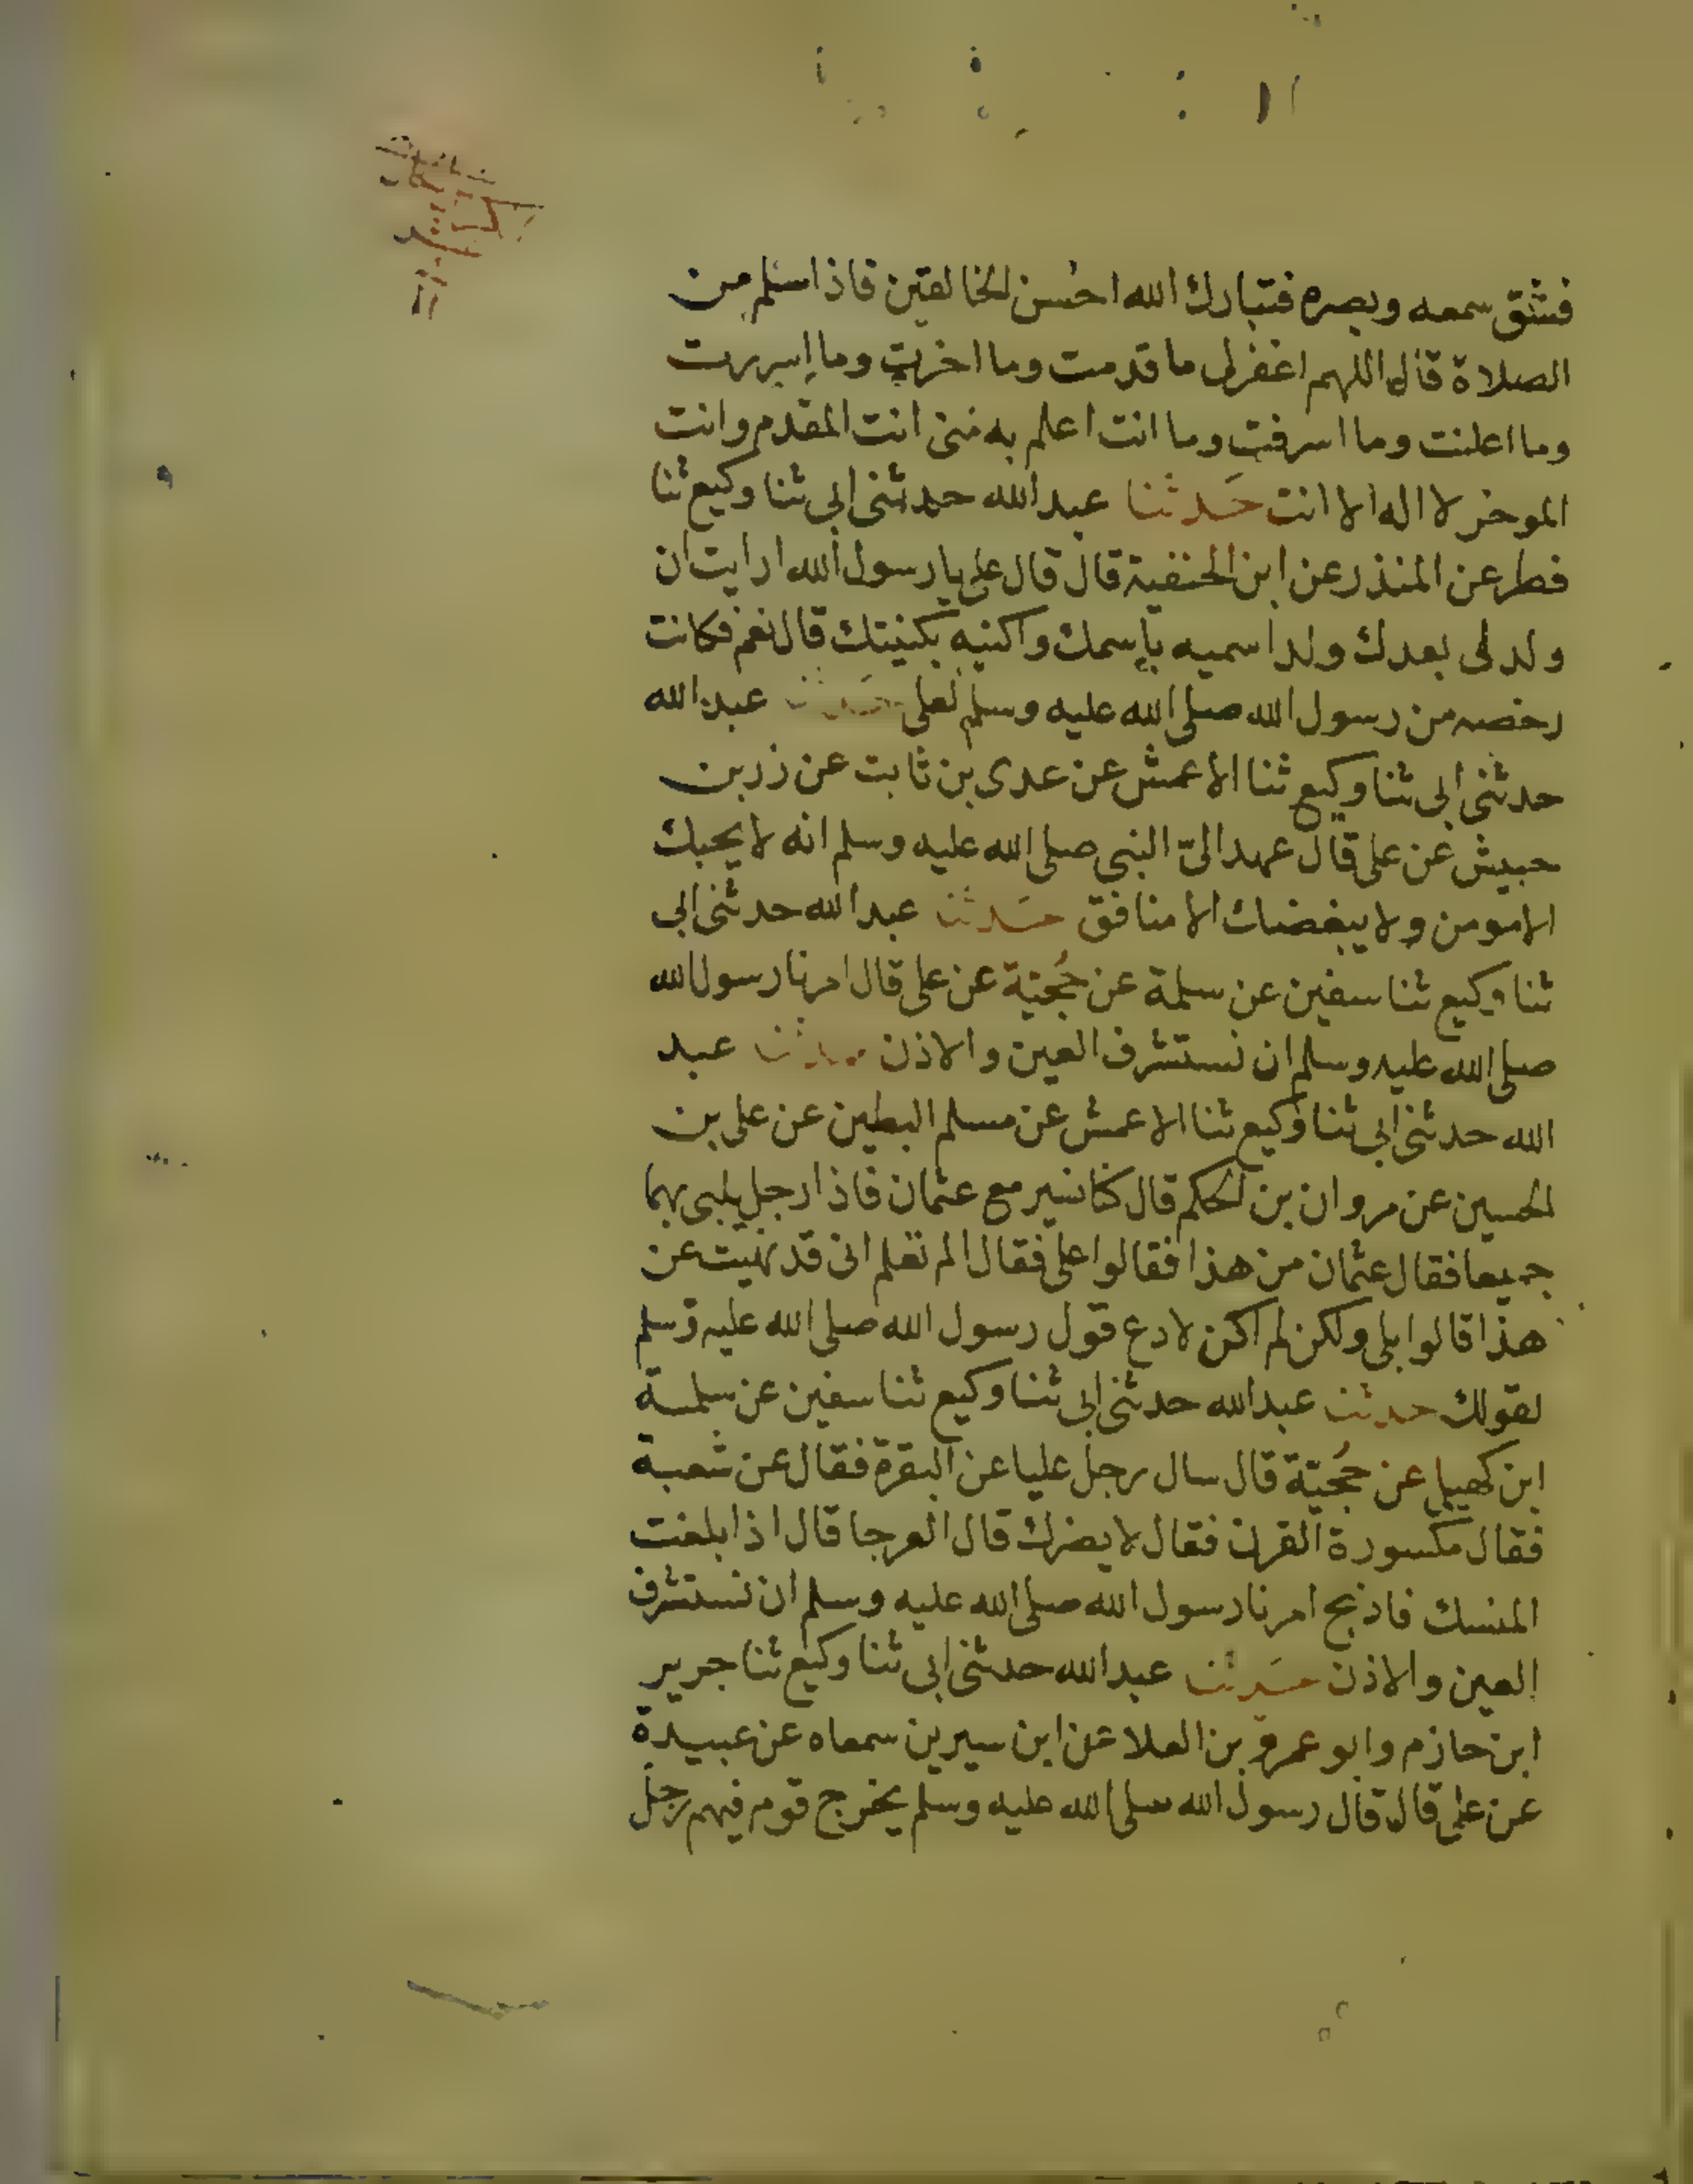 فشق سمعه وبصره فتبارك الله احسن الخالقين فاذا سلم من
الصلاة قال اللهم اغفرلى ما قدمت وما اخرت وما اسررت
وما اعلنت وما اسرفت وما انت اعلم به منى انت المقدم وانت
الموخر لا اله الا انت حدثنا عبد الله حدثنى ابى ثنا وكيع ثنا
فطر عن المنذر عن ابن الحنفية قال قال على يا رسول الله ارايت ان
ولد لى بعدك ولد اسميه باسمك واكنيه بكنيتك قال نعم فكانت
رخصه من رسول الله صلى الله عليه وسلم لعلى حدثنا عبد الله
حدثنى ابى ثنا وكيع ثنا الاعمش عن عدى بن ثابت عن زر بن
حبيش عن على قال عهد الىّ النبى صلى الله عليه وسلم انه لا يحبك
الا مومن ولا يبغضك الا منافق حدثنا عبد الله حدثنى ابى
ثنا وكيع ثنا سفين عن سلمة عن حُجية عن على قال امرنا رسول الله
صلى الله عليه وسلم ان نستشرف العين والاذن حدثنا عبد
الله حدثنى ابى ثنا وكيع ثنا الاعمش عن مسلم البطين عن على بن
الحسين عن مروان بن الحكم قال كنا نسير مع عثمان فاذا رجل يلبى بهما
جميعا فقال عثمان من هذا فقالوا على فقال الم تعلم انى قد نهيت عن
هذا قالوا بلى ولكن لم اكن لادع قول رسول الله صلى الله عليه وسلم
لقولك حدثنا عبد الله حدثنى ابى ثنا وكيع ثنا سفين عن سلمة
ابن كهيل عن حُجية قال سال رجل عليا عن البقرة فقال عن شعبة
فقال مكسورة القرن فقال لا يضرك قال العرجا قال اذا بلغت
المنسك فاذبح امرنا رسول الله صلى الله عليه وسلم ان نستشرف
العين والاذن حدثنا عبد الله حدثنى ابى ثنا وكيع ثنا جرير
ابن حازم وابو عمرو بن العلا عن ابن سيرين سمعاه عن عبيدة
عن على قال قال رسول الله صلى الله عليه وسلم يخرج قوم فيهم رجل